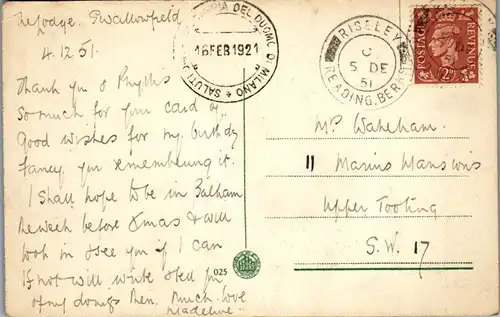 The Lodge, Swallowfield
4.12.51.
Thank you & Phyllis
so much for your card of
Good wishes for my birthday
fancy you remembering it.
I shall hope to be in Balham
the week before Xmas & will
look in & see you if I can
If not will write & tell you
of my doings then. Much love
Madeline.
DEL DUOMO DI MILANO * SALUTI
16 FEB 1921
RISELEY
C
5 DE
51
READING. BERKS
POSTAGE REVENUE
2D
Mrs Wakeham.
11 Marius Mansions
Upper Tooting
S.W. 17
025